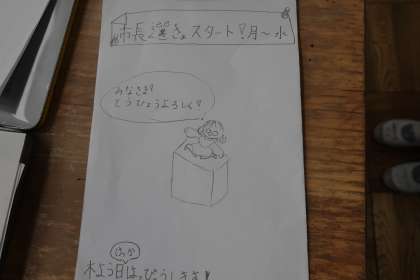 市長選きょスタート!月〜水
みなさま!
とうひょうよろしく!
けっか
木よう日はっぴょうします!